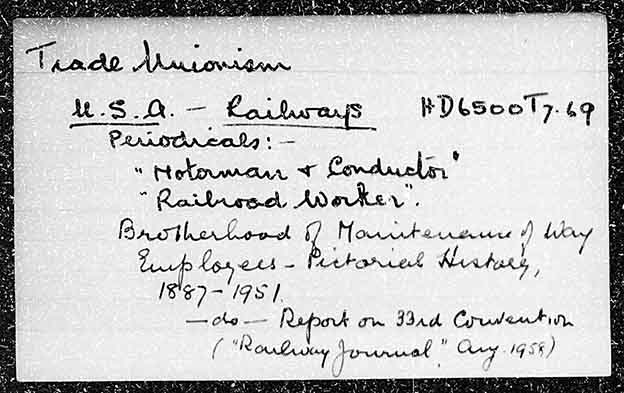 Trade Unionism
U.S.A. – Railways HD6500T7.69
Periodicals:–
"Motorman & Conductor"
"Railroad Worker".
Brotherhood of Maintenance of Way
Employees – Pictorial History,
1887–1951.
—do— Report on 33rd Convention
("Railway Journal", Aug. 1958)